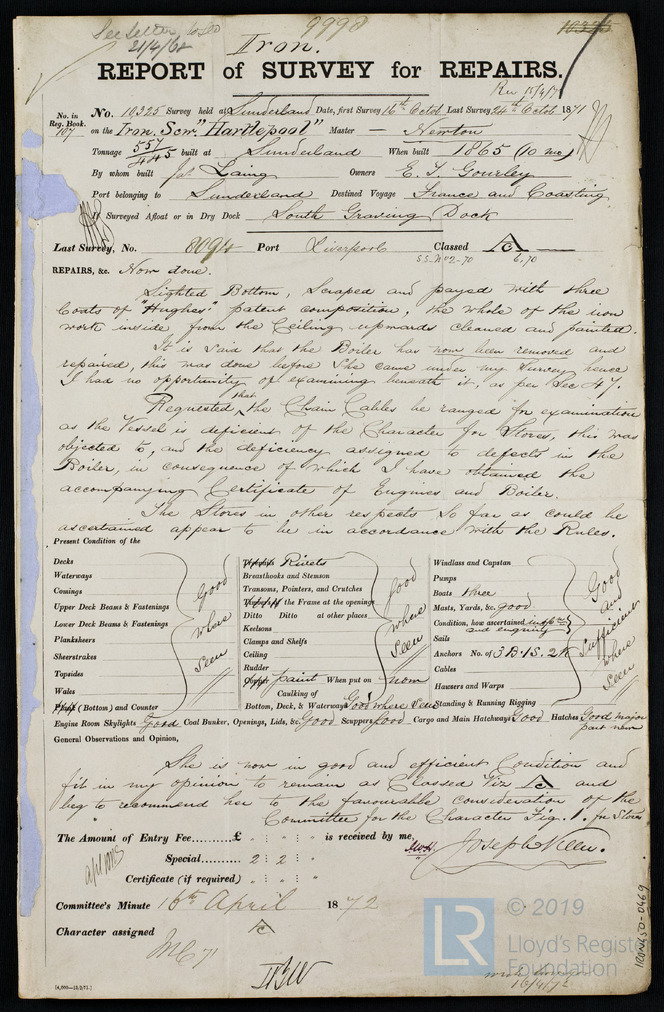 See letter
21/4/62
9998
10325
Iron.
REPORT of SURVEY for REPAIRS.
No. in Reg. Book.
107
No. 10325 Survey held at Sunderland Date, first Survey 16th Octob Last Survey 24th Octob 1871
on the Iron Scrw "Hartlepool" Master — Newton
Tonnage 557/445 built at Sunderland When built 1865 (10 mo)
By whom built Jas Laing Owners E. T. Gourley
Port belonging to Sunderland Destined Voyage France and Coasting
If Surveyed Afloat or in Dry Dock South Graving Dock
Last Survey, No. 8094 Port Liverpool Classed A
S.S. No 2-70 6,70
REPAIRS, &c. Now done.
Sighted Bottom, Scraped and payed with three
Coats of "Hughes'" patent composition, the whole of the iron
work inside, from the Ceiling upwards cleaned and painted.
It is said that the Boiler has now been removed and
repaired, this was done before She came under my Survey hence
I had no opportunity of examining beneath it, as per Sec 47.
Requested, that the Chain Cables be ranged for examination
as the Vessel is deficient of the Character for Stores, this was
objected to, and the deficiency assigned to defects in the
Boiler, in consequence of which I have obtained the
accompanying Certificate of Engines and Boiler.
The Stores in other respects so far as could be
ascertained appear to be in accordance with the Rules.
Present Condition of the
Decks
Waterways
Comings
Upper Deck Beams & Fastenings
Lower Deck Beams & Fastenings
Planksheers
Sheerstrakes
Topsides
Wales
(Bottom) and Counter
Good where Seen
Rivets
Breasthooks and Stemson
Transoms, Pointers, and Crutches
the Frame at the openings
Ditto Ditto at other places
Keelsons
Clamps and Shelfs
Ceiling
Rudder
paint When put on now
Caulking of
Bottom, Deck, & Waterways Good where Seen
Good where Seen
Windlass and Capstan
Pumps
Boats three
Masts, Yards, &c. good
Condition, how ascertained inspon
and enquiry
Sails
Anchors No. of 3B. 1S. 2K
Cables
Hawsers and Warps
Standing & Running Rigging
Good and Sufficient where Seen
Engine Room Skylights Good Coal Bunker, Openings, Lids, &c. Good Scuppers Good Cargo and Main Hatchways Good Hatches Good major
part new
General Observations and Opinion,
She is now in good and efficient Condition and
fit in my opinion to remain as Classed Viz A and
beg to recommend her to the favourable consideration of the
Committee for the Character Fig. 1. for Stores
The Amount of Entry Fee.......... £ " : " : " is received by me,
Special........ 2 : 2 : "
Certificate (if required) " : " : "
Joseph Keen.
Committee's Minute 16th April 1872
Character assigned A
MC 71
[4,000—15/2/71.]
16/4/72
IRON450-0469
LR © 2019
Lloyd's Register
Foundation